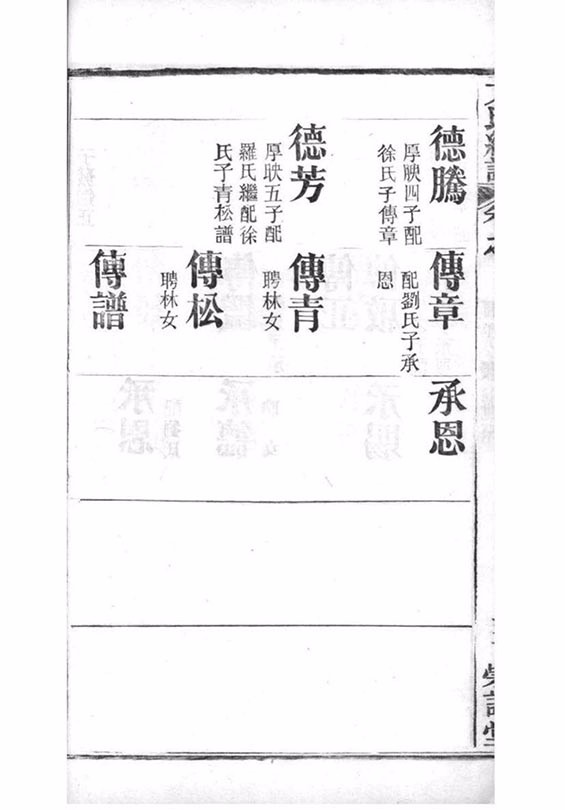 德騰
厚映四子配
徐氏子傳章
德芳
厚映五子配
羅氏繼配徐
氏子青松譜
傳章
配劉氏子承
恩
傳青
聘林女
傳松
聘林女
傳譜
承恩